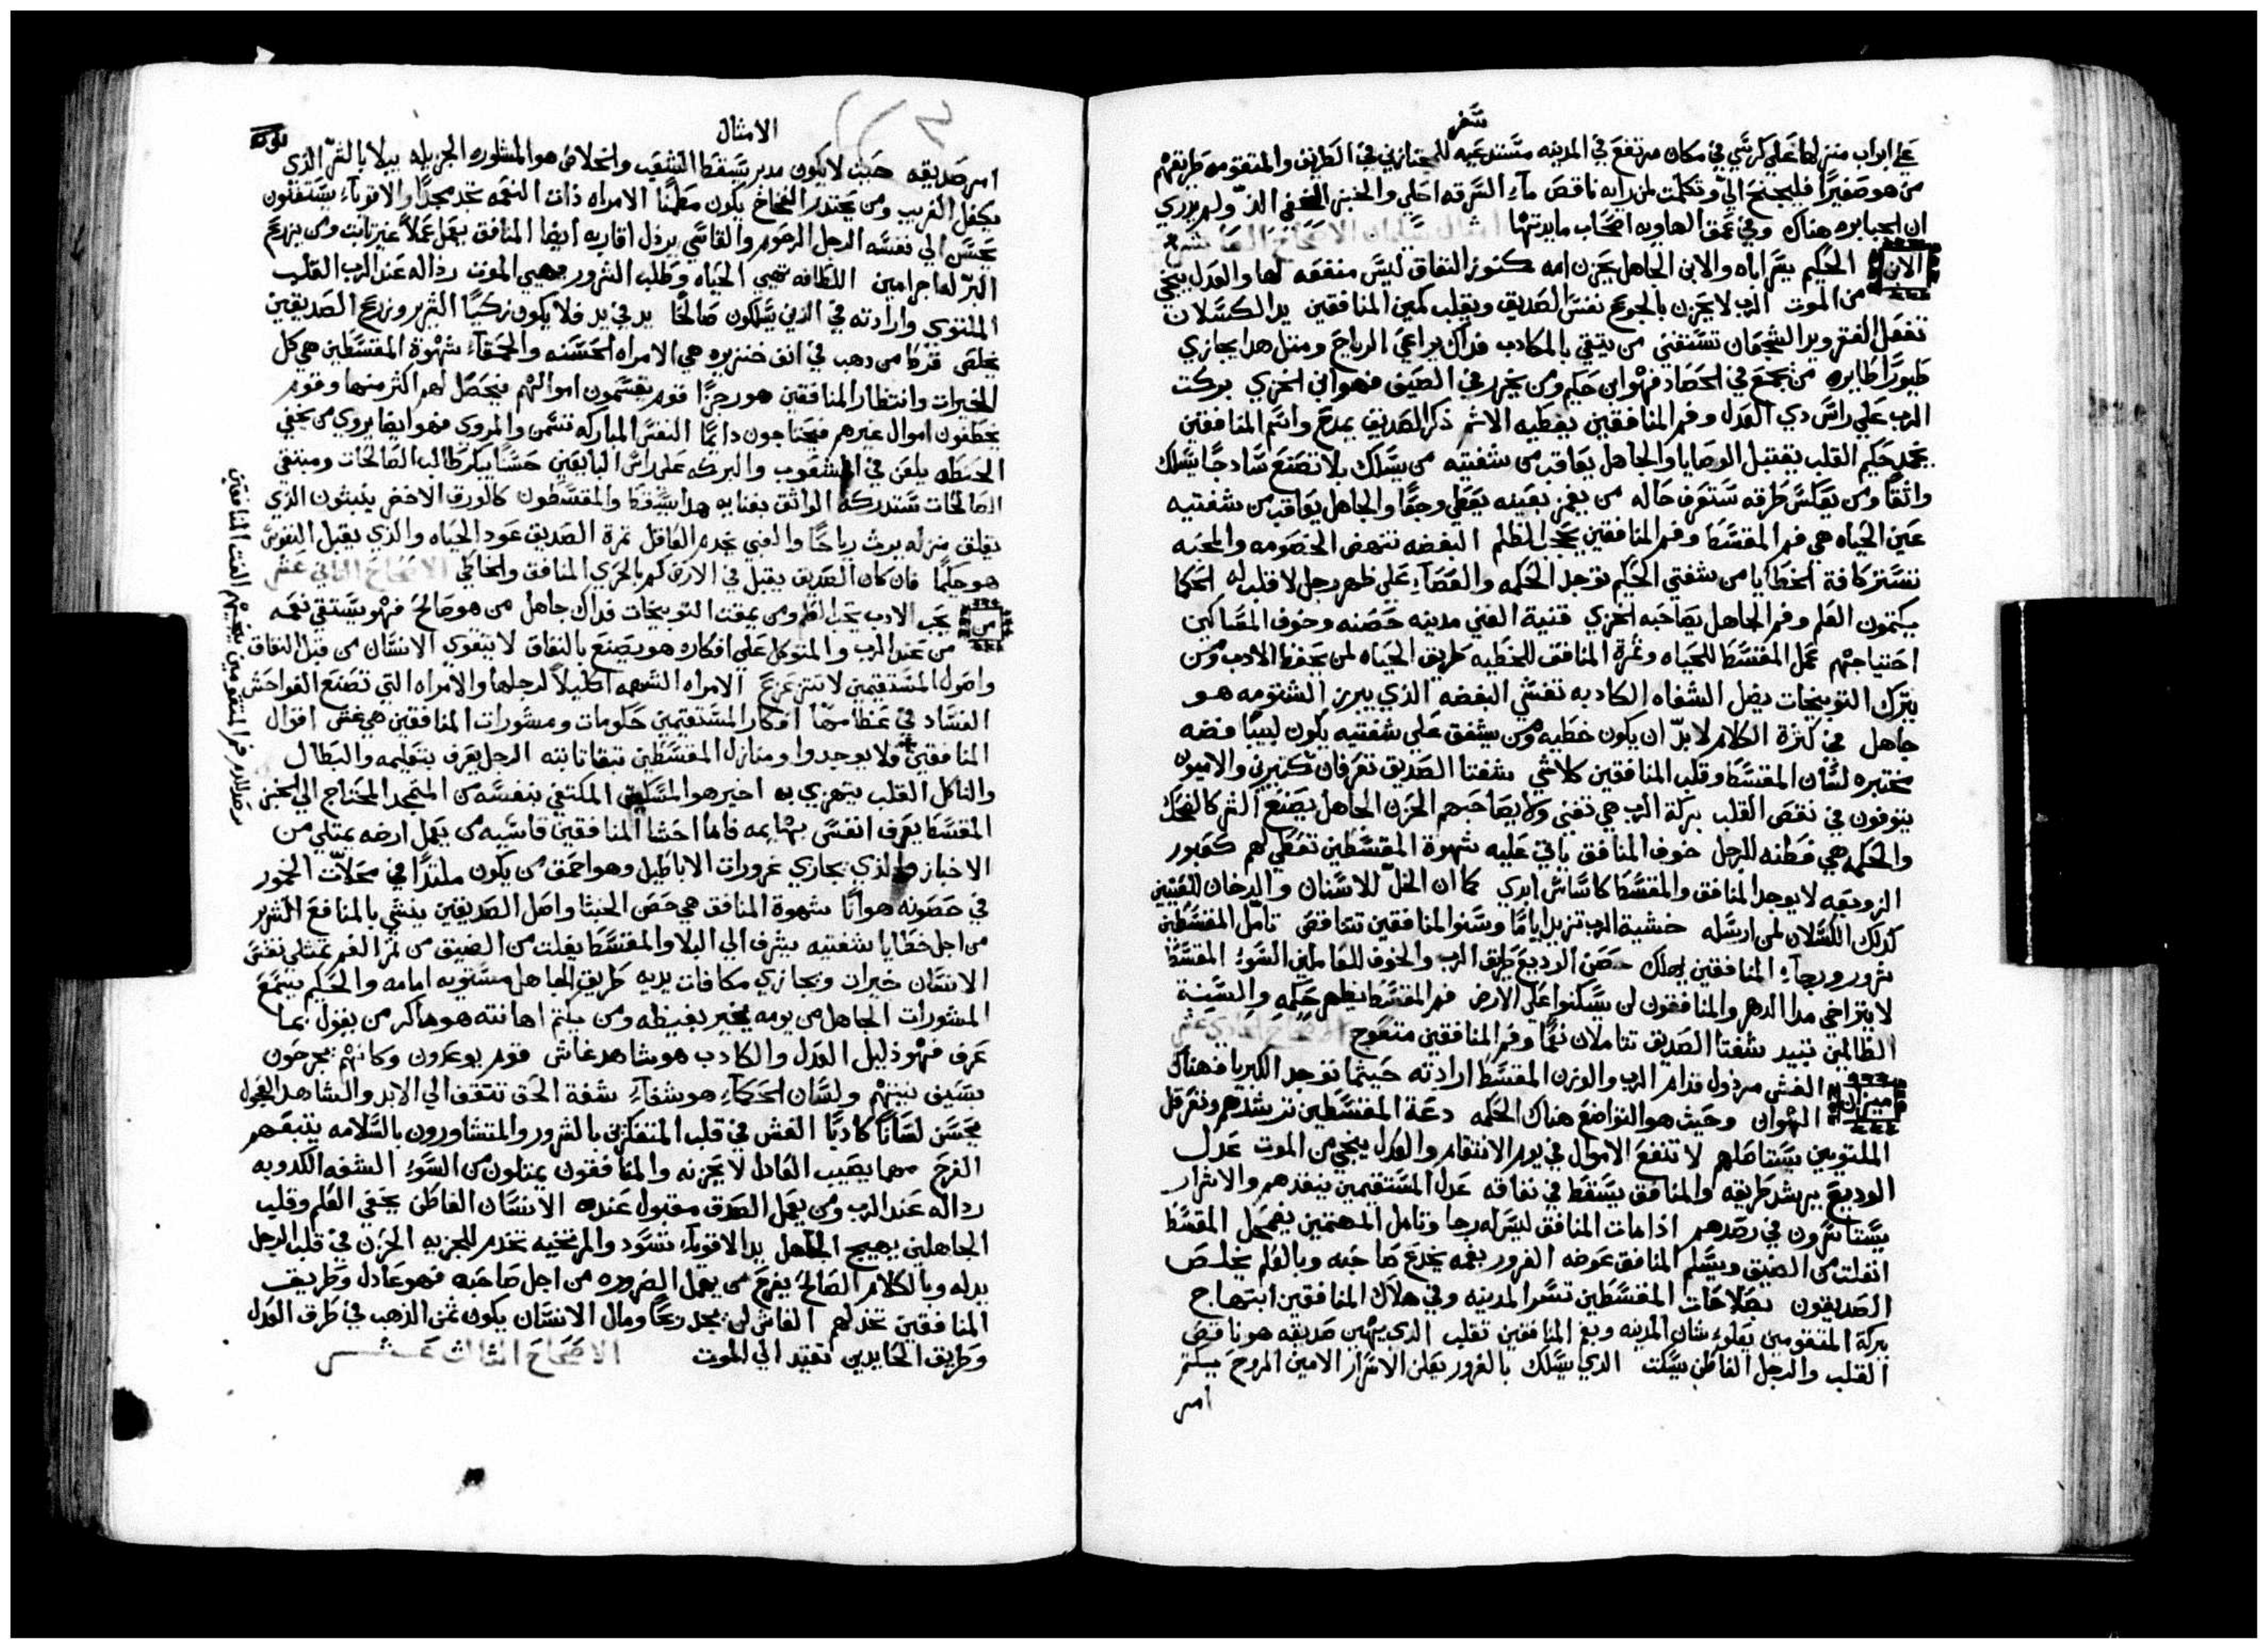 سفر
علي ابواب منزلها علي كرسي في مكان مرتفع في المدينه مستدعيه للمجتازين في الطريق والمتقومه طريقهم
من هو صغيرًا فليجنح الي وتكلمت لمن رايه ناقص مآء السرقه احلي والخبز المخفي الذّ ولم يدري
ان الجبابره هناك وفي عمق الهاويه اصحاب مايدتها امثال سليمان الاصحاح العاشر
الابن الحكيم يسّر اباه والابن الجاهل يحزن امه كنوز النفاق ليس منفعه لها والعدل ينجي
من الموت الرب لا يحزن بالجوع نفس الصديق ويقلب كمين المنافقين يد الكسلان
تفعل الفقر ويد الشجعان تستغني من يتقي بالمكادب فداك يراعي الرياح ومثل هدا يجازي
طيورًا طايره من يجمع في الحصاد فهو ابن حكيم ومن يخرر في الصيف فهو ابن الخزي بركت
الرب علي راس دي العدل وفم المنافقين يغطيه الاثم ذكر الصديق بمدح واسم المنافقين
يخمد حكيم القلب يقتبل الوصايا والجاهل يعاقب من شفتيه من يسلك بلا تصنع سادجًا يسلك
واثقًا ومن يعكس طرقه ستعرف حاله من يغمز بعينه يعطي وجعًا والجاهل يعاقب من شفتيه
عين الحياه هي فم المقسط وفم المنافقين يحجب الظلم البغضه تنهض الخصومه والمحبه
تستر كافة الخطايا من شفتي الحكيم توجد الحكمه والعصاء علي ظهر رجل لا قلب له الحكما
يكتمون العلم وفم الجاهل يصاحبه الخزي قنية الغني مدينه حصنه وخوف المساكين
احتياجهم عمل المقسط للحياه وثمرة المنافق للخطيه طريق الحياه لمن يحفظ الادب ومن
يترك التوبيخات يضل الشفاه الكادبه تغشي البغضه الذي يبرز الشتومه هو
جاهل في كثرة الكلام لا بدّ ان يكون خطيه ومن يشفق علي شفتيه يكون لبيبًا فضه
مختبره لسان المقسط وقلب المنافقين كلاشي شفتا الصديق تعرفان كثيرين والاميون
يتوفون في نقص القلب بركة الرب هي تغني ولا يصاحبهم الحزن الجاهل يصنع الشر كالضحك
والحكمه هي فطنه للرجل خوف المنافق ياتي عليه شهوة المقسطين تعطي لهم كعبور
الزوبعه لا يوجد المنافق والمقسط كاساس ابدي كما ان الخلّ للاسنان والدخان للعينين
كدلك الكسلان لمن ارسله خشية الرب تزيد ايامًا وسنو المنافقين تتناقص تامل المقسطين
سرور ورجآء المنافقين يهلك حصن الوديع طريق الرب والخوف للعاملين السوء المقسط
لا يتراخي مدا الدهر والمنافقون لن يسكنوا علي الارض فم المقسط يظهر حكمه والسنة
الظالمين تبيد شفتا الصديق تتاملان نعمًا وفم المنافقين متعوج الاصحاح الحادي عشر
ميزان الغش مرذول قدام الرب والوزن المقسط ارادته حيثما توجد الكبريا فهناك
الهوان وحيث هو التواضع هناك الحكمه دعة المقسطين ترشدهم وتعرقل
الملتويين يستاصلهم لا تنفع الاموال في يوم الانتقام والعدل ينجي من الموت عدل
الوديع يرشد طريقه والمنافق يسقط في نفاقه عدل المستقيمين ينقذهم والاشرار
يستاسرون في رصدهم اذا مات المنافق ليس له رجا وتامل المهتمين يضمحل المقسط
انفلت من الضيق ويسلم المنافق عوضه الغرور بفمه يخدع صاحبه وبالعلم يخلص
الصديقون بصلاحات المقسطين تسر المدينه وفي هلاك المنافقين ابتهاج
ببركة المتقومين يعلوء شان المدينه وبفم المنافقين تقلب الذي يهين صديقه هو ناقص
القلب والرجل الفاطن يسكت الذي يسلك بالغرور يعلن الاسرار الامين الروح يكتم
امر
الامثال
امر صديقه حيث لا يكون مدبر يسقط الشعب والخلاص هو المشوره الجزيله يبلا بالشرّ الذي
يكفل الغريب ومن يحتدر الفخاخ يكون مطمنًا الامراه ذات النعمه تجد مجدًا والاقويآء يستغنون
يحسن الي نفسه الرجل الرحوم والقاسي يرذل اقاربه ايضا المنافق يعمل عملًا غير ثابت ومن يزرع
البرّ لها جرا مين اللطافه تهيي الحياه وطلب الشرور يهيي الموت رذاله عند الرب القلب
الملتوي وارادته في الذين يسلكون صالحًا يد في يد فلا يكون زكيًا الشرير وزرع الصديقين
يخلص قرط من دهب في انف خنزيره هي الامراه الحسنه والحمقآء شهوة المقسطين هي كل
الخيرات وانتظار المنافقين هو رجزًا قوم يقسمون اموالهم فيحصل لهم اكثر منها وقوم
يخطفون اموال غيرهم فيحتاجون دايمًا النفس المباركه تتسمن والمروي فهو ايضا يروي من يخفي
الحنطه يلعن في الشعوب والبركه علي راس البايعين حسنًا يبكر طالب الصالحات ومبتغي
الصالحات ستدركه الواثق بغنايه هدا يسقط والمقسطون كالورق الاخضر ينبتون الذي
يقلق منزله يرث رياحًا والغبي يخدم العاقل ثمرة الصديق عود الحياه والذي يقبل النفوس
هو حكيمًا فان كان الصديق يقبل في الارض كم بالحري المنافق والخاطي الاصحاح الثاني عشر
من يحب الادب يحب العلم ومن يمقت التوبيخات فداك جاهل من هو صالح فهو يستقي نعمه
من عند الرب والمتوكل علي افكاره هو يصنع بالنفاق لا يتقوي الانسان من قبل النفاق
واصول المستقيمين لا تتزعزع الامراه الشهمه اكليلًا لرجلها والامراه التي تصنع الفواحش
الفساد في عظامها افكار المستقيمين حكومات ومشورات المنافقين هي غش اقوال
المنافقين ولا يوجدوا ومنازل المقسطين تبقا ثابته الرجل يعرف بتعليمه والبطال
والناكل القلب يتهري به اخير هو المسكين المكتفي بنفسه من المتمجد المحتاج الي الخبز
المقسط يعرف انفس بهايمه فاما احشا المنافقين قاسيه من يعمل ارضه يمتلي من
الاخباز والذي يجازي غرورات الاباطيل وهو احمق من يكون ملتذًا في محلات الخمور
في حصونه هوانًا شهوة المنافق هي حصن الخبثا واصل الصديقين ينشي بالمنافع الشرير
من اجل خطايا شفتيه يشرف الي البلا والمقسط يفلت من الضيق من ثمر الفم تمتلي نفس
الانسان خيرات ويجازي مكافات يديه طريق الجاهل مستويه امامه والحكيم يسمع
المشورات الجاهل من يومه يخبر بغيظه ومن يكتم اهانته هو ماكر من يقول بما
عرف فهو ذليل العدل والكادب هو شاهد غاش قوم يوعدون وكانهم يجرحون
بسيف نيتهم ولسان الحكمآء هو شفآء شفة الحق تتقف الي الابد والشاهد العجول
يحسن لسانًا كادبًا الغش في قلب المتفكرين بالشرور والمتشاورون بالسلامه يتبعهم
الفرح مهما يصيب العادل لا يحزنه والمنافقون يمتلون من السوء الشفه الكدوبه
رداله عند الرب ومن يعمل الصدق مقبول عنده الانسان الفاطن يخفي العلم وقلب
الجاهلين يهيج الجهل يد الاقويآء تسود والمرتخيه تخدم للجزيه الحزن في قلب الرجل
يدله وبالكلام الصالح يفرح من يهمل الضروره من اجل صاحبه فهو عادل وطريق
المنافقين تخدلهم الغاش لن يجد ربحًا ومال الانسان يكون ثمن الذهب في طرق العدل
وطريق الحايدين تقتد الي الموت الاصحاح الثالث عشر